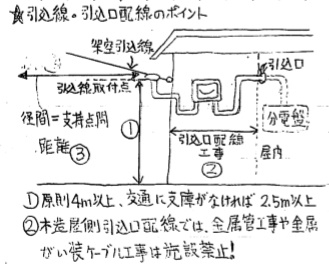 ☆引込線・引込口配線のポイント
架空引込線
引込口
引込線取付点
分電盤
径間=支持点間
距離③
①
引込口配線
工事
②
屋内
①原則4m以上、交通に支障がなければ2.5m以上
②木造屋側引込口配線では、金属管工事や金属
がい装ケーブル工事は施設禁止!